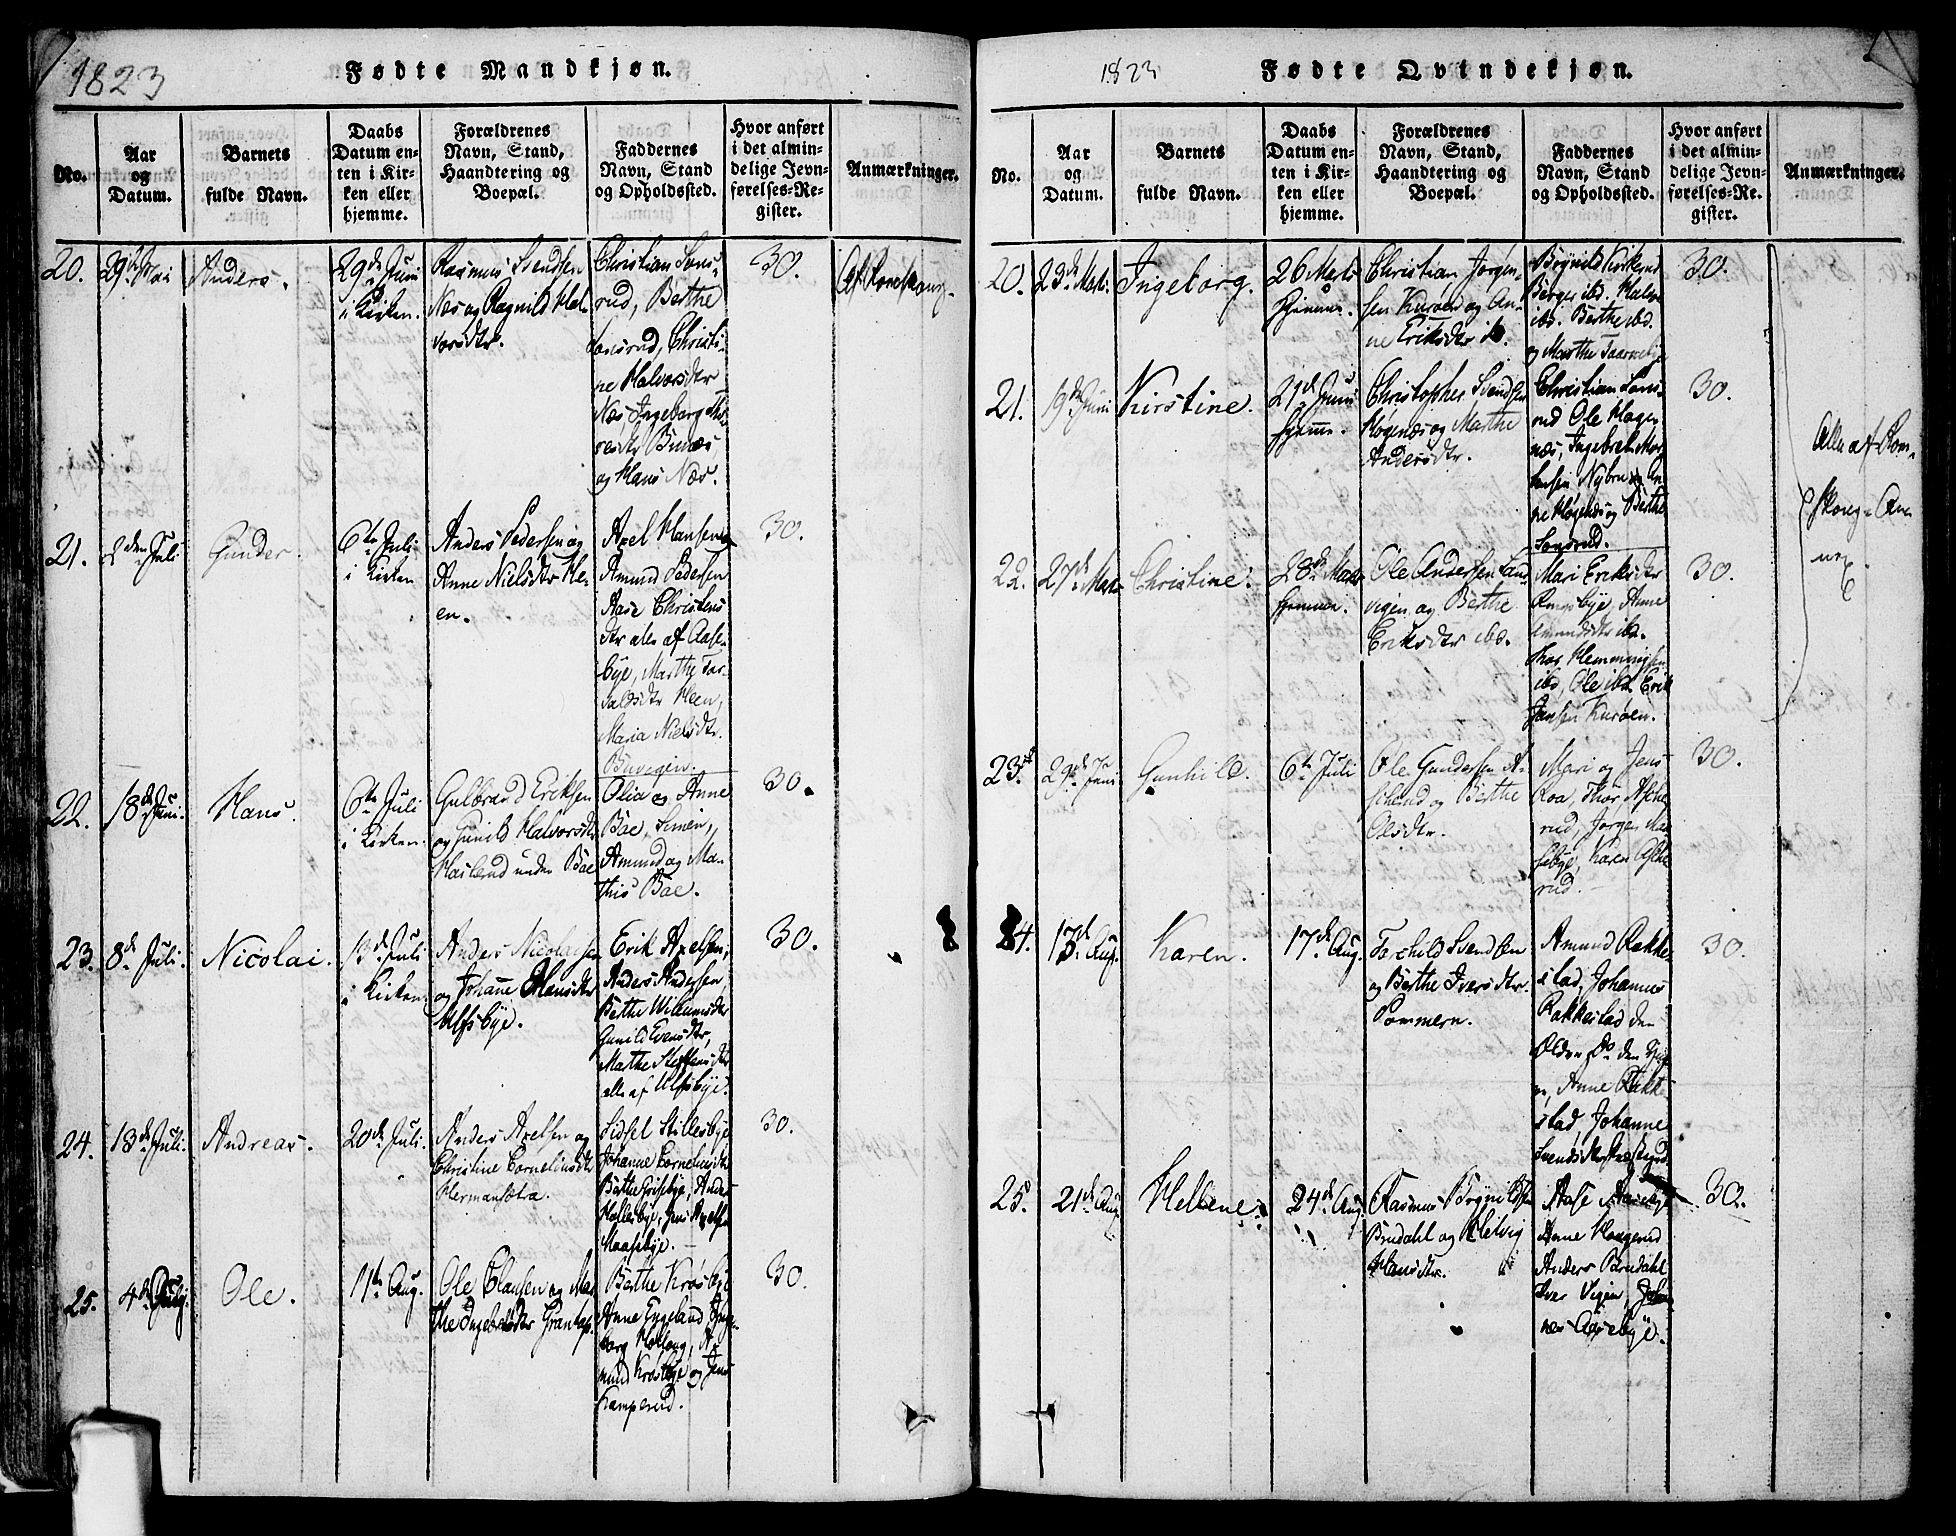 1823
Fødte Mandkjøn.
No.
Aar
og
Datum.
Barnets
fulde Navn.
Daabs
Datum en-
ten i Kir-
ken eller
hjemme.
Forældrenes
Navn, Stand,
Haandtering og
Boepæl.
Faddernes
Navn, Stand
og Opholdssted.
Hvor anført
i det almin-
delige Jevn-
førelses-Re-
gister.
Anmærkninger.
20.
29de Mai
Anders.
29de Juni
i Kirken.
Rasmus Svendsen
Næs og Ragnild Hal-
vorsdtr.
Christian Sons-
rud, Berthe
Sonsrud, Christi-
ne Halvorsdtr
Næs, Ingeborg
Bunæs
og Hans Næs.
30.
Af Romskoug.
21.
2den Juli
Gunder.
6te Juli
i Kirken
Anders Pedersen og
Anne Nielsdtr He-
en.
Axel Hansen
Amund Pedersen
Aase Christens
dtr alle af Aase-
bye, Marthe Tar-
aldsdtr Heen,
Maria Nielsdtr.
Buvigen.
30.
22.
18de Juni.
Hans.
6te Juli
i Kirken.
Gulbrand Eriksen
og Gunild Halvorsdtr
Haslerud under Bøe
Olia og Anne
Bøe, Simen,
Amund og Ma-
this Bøe.
30.
23.
8de Juli.
Nicolai.
13de Juli
i Kirken.
Anders Nicolaisen
og Johanne Hansdtr
Ulfsbye.
Erik Axelsen,
Anders Andersen,
Berthe Willumsdtr
Gunild Evensdtr,
Marthe Steffensdtr
alle af Ulfsbye.
30.
24.
13de Juli.
Andreas.
20de Juli.
Anders Axelsen og
Christine Corneliusdtr
Hermansæta.
Sidsel Stillesbye
Johanne Corneliusdtr
Berthe Grisebye, Anders
Møllesbye, Jens Axelsen
Haasebye.
30.
25.
4de Julij
Ole.
11te Aug.
Ole Olausen og Mar-
the Ingebrigtsdtr Grantop.
Berthe Krosbye
Anne Tygeland Inge-
borg Kollong, A-
mund Krosbye og Jens
Kamperud.
30.
1823
Fødte Qvindekjøn.
No.
Aar
og
Datum.
Barnets
fulde Navn.
Daabs
Datum en-
ten i Kir-
ken eller
hjemme.
Forældrenes
Navn, Stand,
Haandtering og
Boepæl.
Faddernes
Navn, Stand
og Opholdssted.
Hvor anført
i det almin-
delige Jevn-
førelses-Re-
gister.
Anmærkninger.
20.
23de Marts
Ingeborg.
26 Marts
hjemme.
Christian Jørgen-
sen Kurøen og An-
ne Eriksdtr ib.
Brynild Kirkerud
Børger ibd. Halvor
ibd. Berthe ibd.
og Marthe Taarnebye
30.
21.
19de Juni
Kirstine.
21de Juni
hjemme.
Christopher Svendsen
Høgenæs og Marthe
Andersdtr.
Christian Sons-
rud Ole Hage-
næs, Ingebret Mor-
tensen Nybro og An-
ne Høgenæs og Berthe
Sonsrud.
30.
Alle af Rom-
skoug-An-
nex
22.
27de Marts
Christine.
28de Marts
hjemme.
Ole Andersen Sand-
vigen og Berthe
Eriksdtr ibd.
Mari Eriksdtr
Ringsbye, Anne
Amundsdtr ibd.
Thor Hemmingsen
ibd, Ole ibd Erik
Jansen Kurøen.
30.
23.
29de Juni
Gunhild.
6te Juli
Ole Gundersen A-
scherud og Berthe
Olsdtr.
Mari og Jens
Roa, Thor Asche-
rud, Jørgen Mos-
sebye, Karen Asche-
rud.
30.
24.
13de Aug.
Karen.
17de Aug.
Torchild Svendsen
og Berthe Iversdtr.
Pommern.
Amund Rakke-
stad, Johannes
Rakkestad den
Ældre, Do den Yng-
re, Anne Rakke-
stad, Johanne
Svendsdtr
30.
25.
21de Aug.
Hellene.
24de Aug.
Rasmus Brynildsen
Brudahl og Helvig
Hansdtr.
Aase Aasebye
Anne Haugerud
Anders Brudahl
Iver Vigen, Johan-
nes Aasebye.
30.